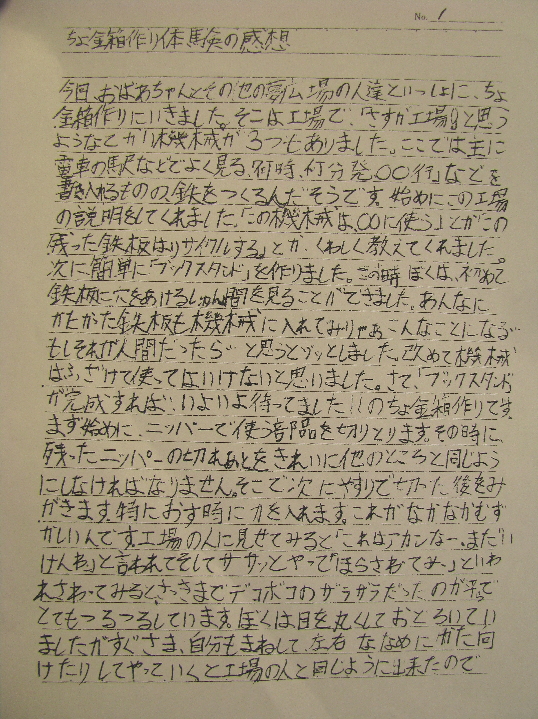 No. 1
ちょ金箱作り体験の感想
今日、おばあちゃんとその他の夢広場の人達といっしょに、ちょ
金箱作りにいきました。そこは工場で、「さすが工場」と思う
ようなでかい機械が3つもありました。ここでは主に
電車の駅などでよく見る、「何時、何分発〇〇行」などを
書き入れるものの鉄をつくるんだそうです。始めにこの工場
の説明をしてくれました。「この機械は、〇〇に使う」とか「この
残った鉄板はリサイクルする」とか、くわしく教えてくれました。
次に簡単に「ブックスタンド」を作りました。この時ぼくは、初めて
鉄板に穴をあけるしゅん間を見ることができました。あんなに
かたかった鉄板も機械に入れてみりゃあこんなことになる
もしそれが人間だったら…と思うとゾッとしました。改めて機械
はふざけて使ってはいけないと思いました。さて、「ブックスタンド」
が完成すれば、いよいよ待ってました!!のちょ金箱作りです。
まず始めに、ニッパーで使う部品を切りとります。その時に、
残ったニッパーの切れあとをきれいに他のところと同じよう
にしなければなりません。そこで次にやすりで切った後をみ
がきます。特におす時に力を入れます。これがなかなかむず
かしいんです。工場の人に見せてみると「これはアカンなー、まだい
けんわ」と言われてそしてササッとやって「ほらさわってみー」といわ
れさわってみると、さっきまでデコボコのザラザラだったのが
とてもつるつるしています。ぼくは目を丸くしておどろいてい
ましたがすぐさま、自分もまねして、左右ななめにかた向
けたりしてやっていくと工場の人と同じように出来たので